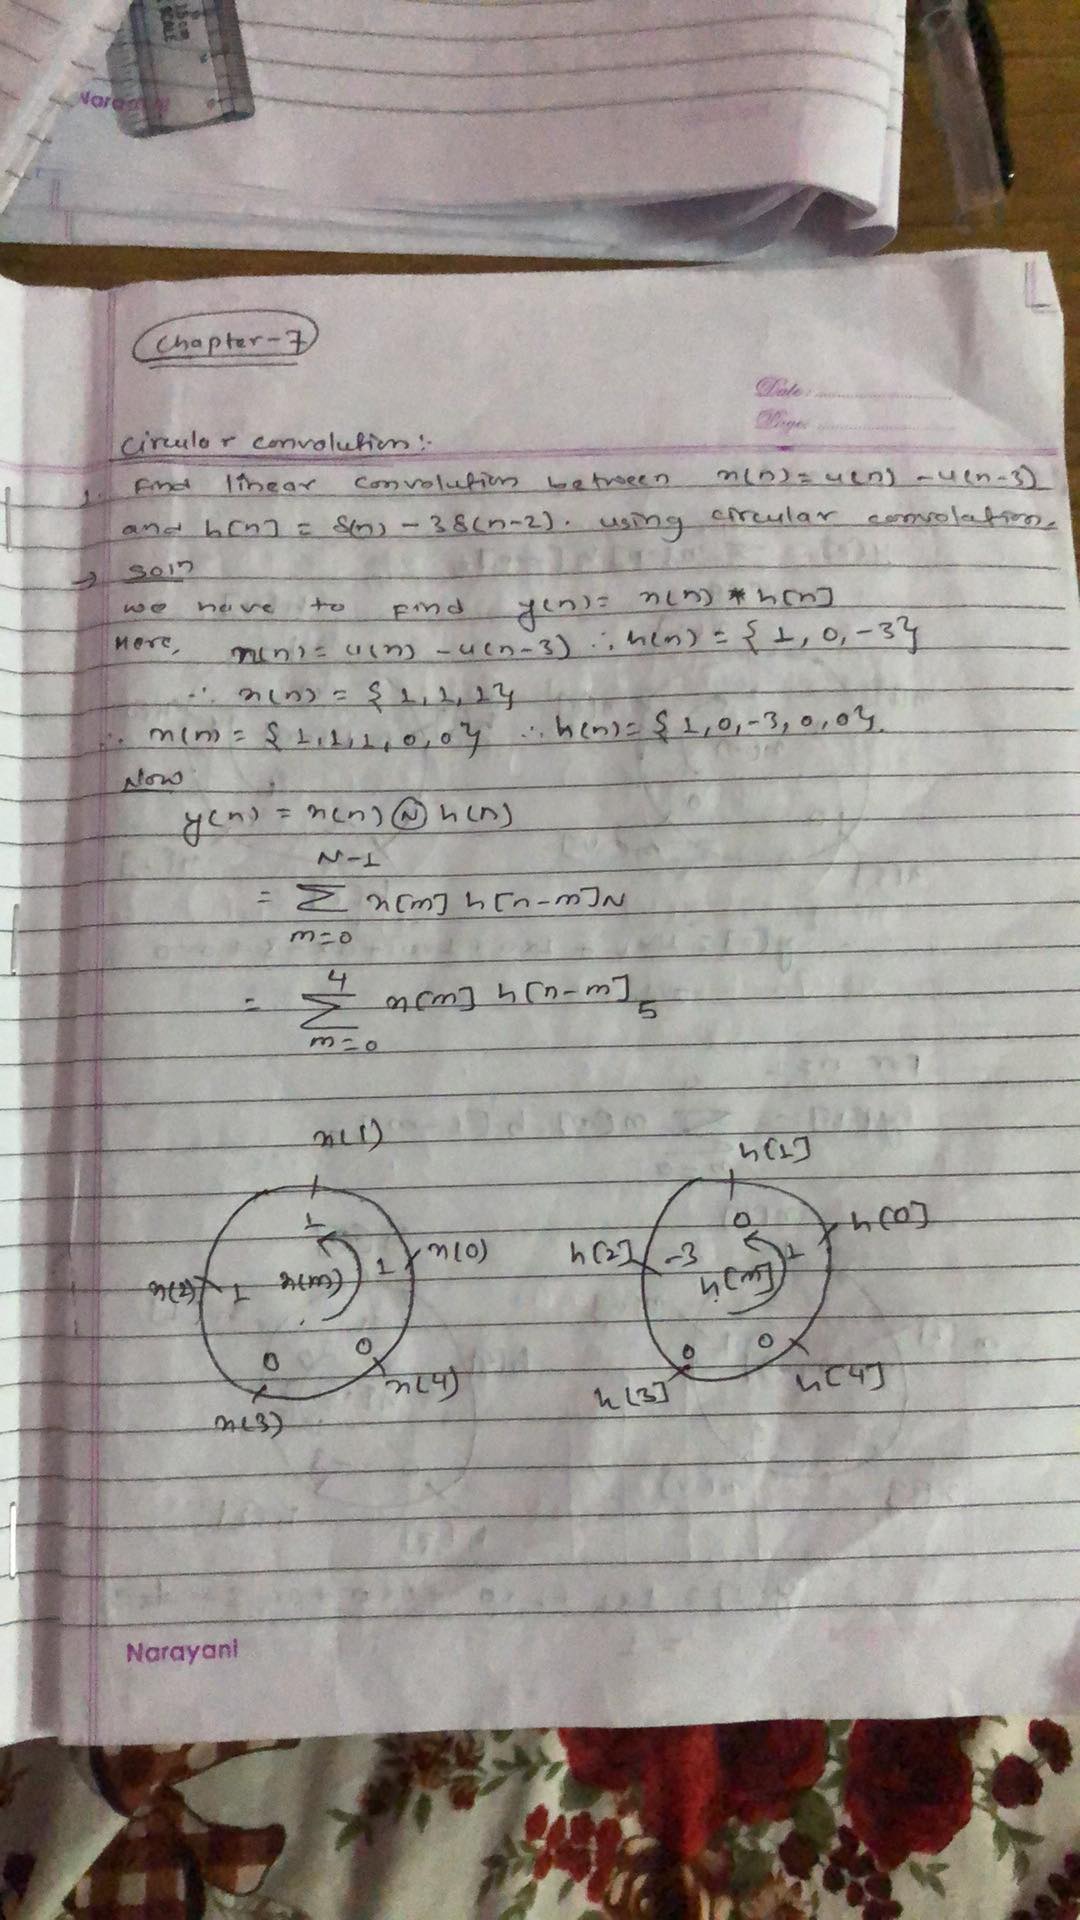 15cm
SCALE
Narayani
Chapter-7
Date:
Page:
Circular convolution:-
1. Find linear convolution between x(n) = u(n) - u(n-3)
and h[n] = δ(n) - 3δ(n-2). using circular convolation.
→ Soln
we have to find y(n) = x(n) * h[n]
Here, x(n) = u(n) - u(n-3) ∴ h(n) = {1, 0, -3}
∴ x(n) = {1, 1, 1}
∴ x(n) = {1, 1, 1, 0, 0} ∴ h(n) = {1, 0, -3, 0, 0}.
Now
y(n) = x(n) Ⓝ h(n)
N-1
= Σ x[m] h[n-m]N
m=0
4
= Σ x[m] h[n-m]5
m=0
x(1) h[1]
1 0
x(2) 1 x(m) 1 x(0) h[2] -3 h[m] 1 h[0]
0 0 0 0
x(3) x(4) h[3] h[4]
Narayani